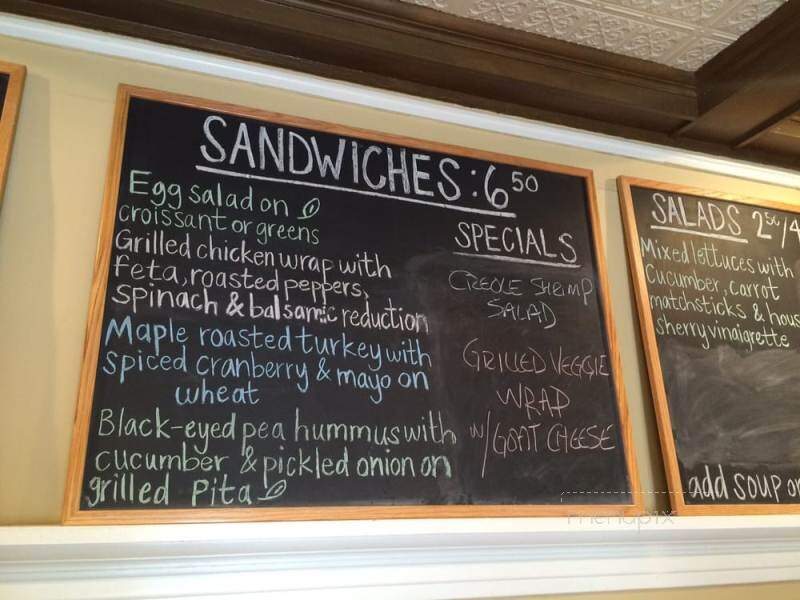 SANDWICHES: 6 50
Egg salad on
croissant or greens
Grilled chicken wrap with
feta, roasted peppers,
spinach & balsamic reduction
Maple roasted turkey with
spiced cranberry & mayo on
wheat
Black-eyed pea hummus with
cucumber & pickled onion on
grilled pita
SPECIALS
CREOLE SHRIMP
SALAD
GRILLED VEGGIE
WRAP
W/ GOAT CHEESE
SALADS 2 50/4
Mixed lettuces with
cucumber, carrot
matchsticks & hous
sherry vinaigrette
add soup or
menupix